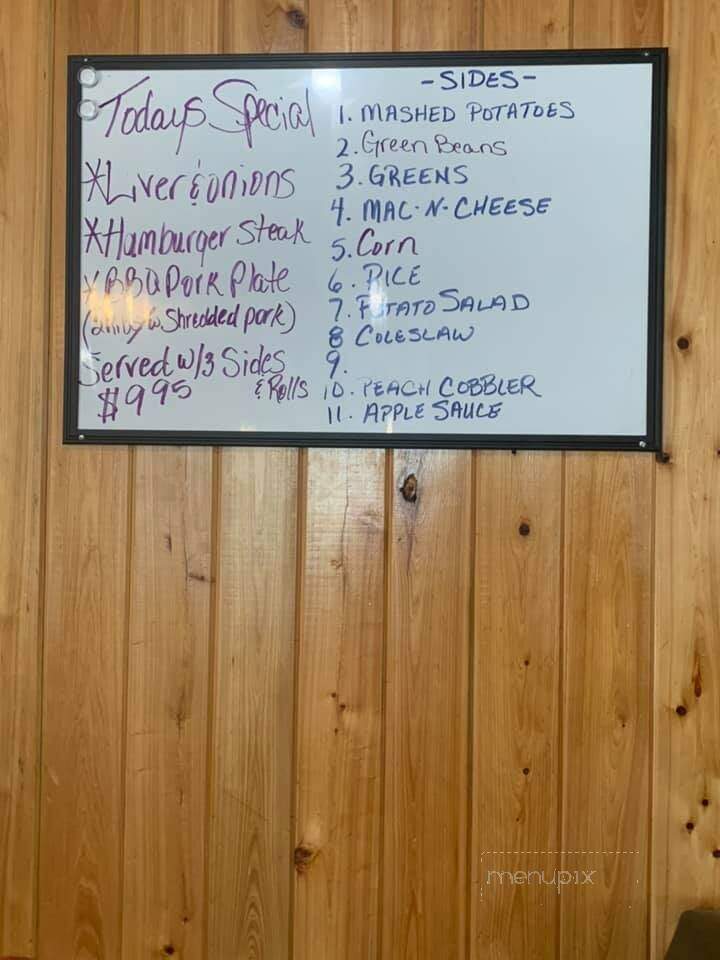 Todays Special
*Liver & onions
*Hamburger Steak
*BBQ Pork Plate
Shredded pork)
Served w/3 Sides
& Rolls
$9 95
-SIDES-
1. MASHED POTATOES
2. Green Beans
3. GREENS
4. MAC-N-CHEESE
5. Corn
6. RICE
7. POTATO SALAD
8 COLESLAW
9.
10. PEACH COBBLER
11. APPLE SAUCE
menupix